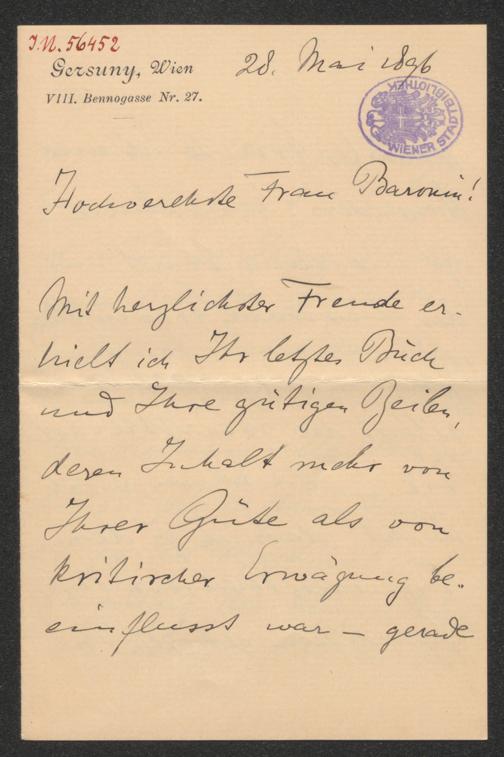 J.N. 56452
Gersuny, Wien
VIII. Bennogasse Nr. 27.
28. Mai 1896
WIENER STADTBIBLIOTHEK
Hochverehrte Frau Baronin!
Mit herzlichster Freude er-
hielt ich Ihr letztes Buch
und Ihre gütigen Zeilen,
deren Inhalt mehr von
Ihrer Güte als von
kritischer Erwägung be-
einflusst war – gerade